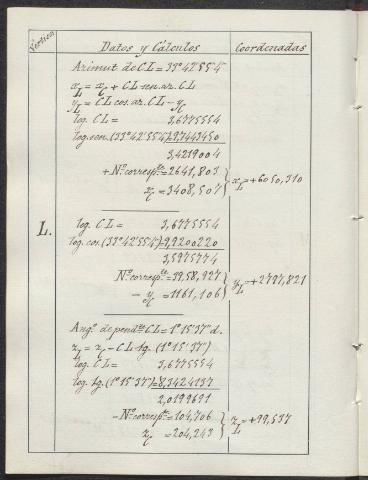 Vértices Datos y Cálculos Coordenadas
Azimut de CL = 33°42'55"4
x_L = x_C + CL sen. az. CL
y_L = CL cos. az. CL - y_C
log. CL = 3,6775554
log. sen. (33°42'55"4) = 9,7443450
3,4219004
+ N.º corresp.te = 2641,803
x_C = 3408,507 } x_L = +6050,310
L. log. CL = 3,6775554
log. cos. (33°42'55"4) = 9,9200220
3,5975774
N.º corresp.te = 3958,927
- y_C = 1161,106 } y_L = +2797,821
Ang.º de pend.te CL = 1°15'37" d.
z_L = z_C - CL tg. (1°15'37")
log. CL = 3,6775554
log. tg. (1°15'37") = 8,3424137
2,0199691
- N.º corresp.te = 104,706
z_C = 204,243 } z_L = +99,537